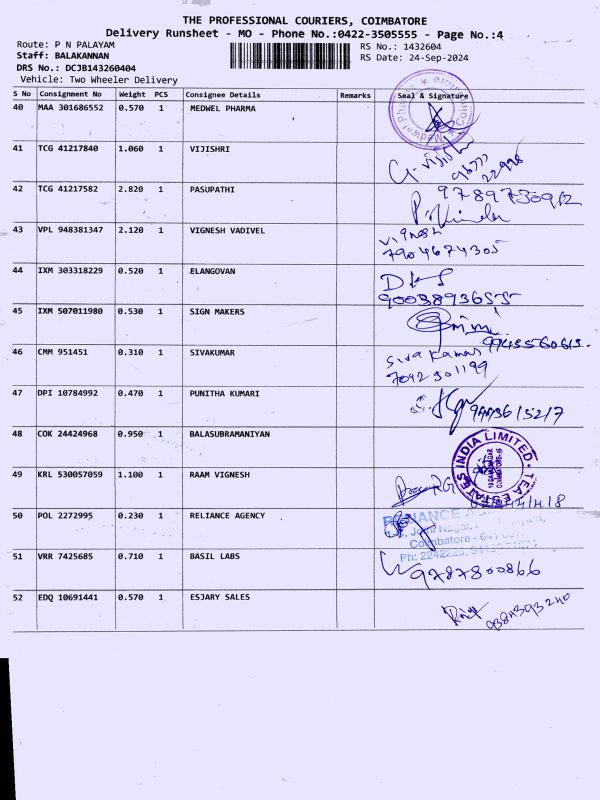 THE PROFESSIONAL COURIERS, COIMBATORE
Delivery Runsheet - MO - Phone No.:0422-3505555 - Page No.:4
Route: P N PALAYAM
RS No.: 1432604
Staff: BALAKANNAN
RS Date: 24-Sep-2024
DRS No.: DCJB143260404
Vehicle: Two Wheeler Delivery
S No Consignment No Weight PCS Consignee Details Remarks Seal & Signature
40 MAA 301686552 0.570 1 MEDWEL PHARMA
41 TCG 41217840 1.060 1 VIJISHRI
42 TCG 41217582 2.820 1 PASUPATHI
43 VPL 948381347 2.120 1 VIGNESH VADIVEL
7904674305
44 IXM 303318229 0.520 1 ELANGOVAN
9003893655
45 IXM 507011980 0.530 1 SIGN MAKERS
46 CMM 951451 0.310 1 SIVAKUMAR
Siva Kumar
47 DPI 10784992 0.470 1 PUNITHA KUMARI
48 COK 24424968 0.950 1 BALASUBRAMANIYAN
TEA ESTATES INDIA LIMITED
49 KRL 530057059 1.100 1 RAAM VIGNESH
50 POL 2272995 0.230 1 RELIANCE AGENCY
Coimbatore
51 VRR 7425685 0.710 1 BASIL LABS
9787800866
52 EDQ 10691441 0.570 1 ESJARY SALES